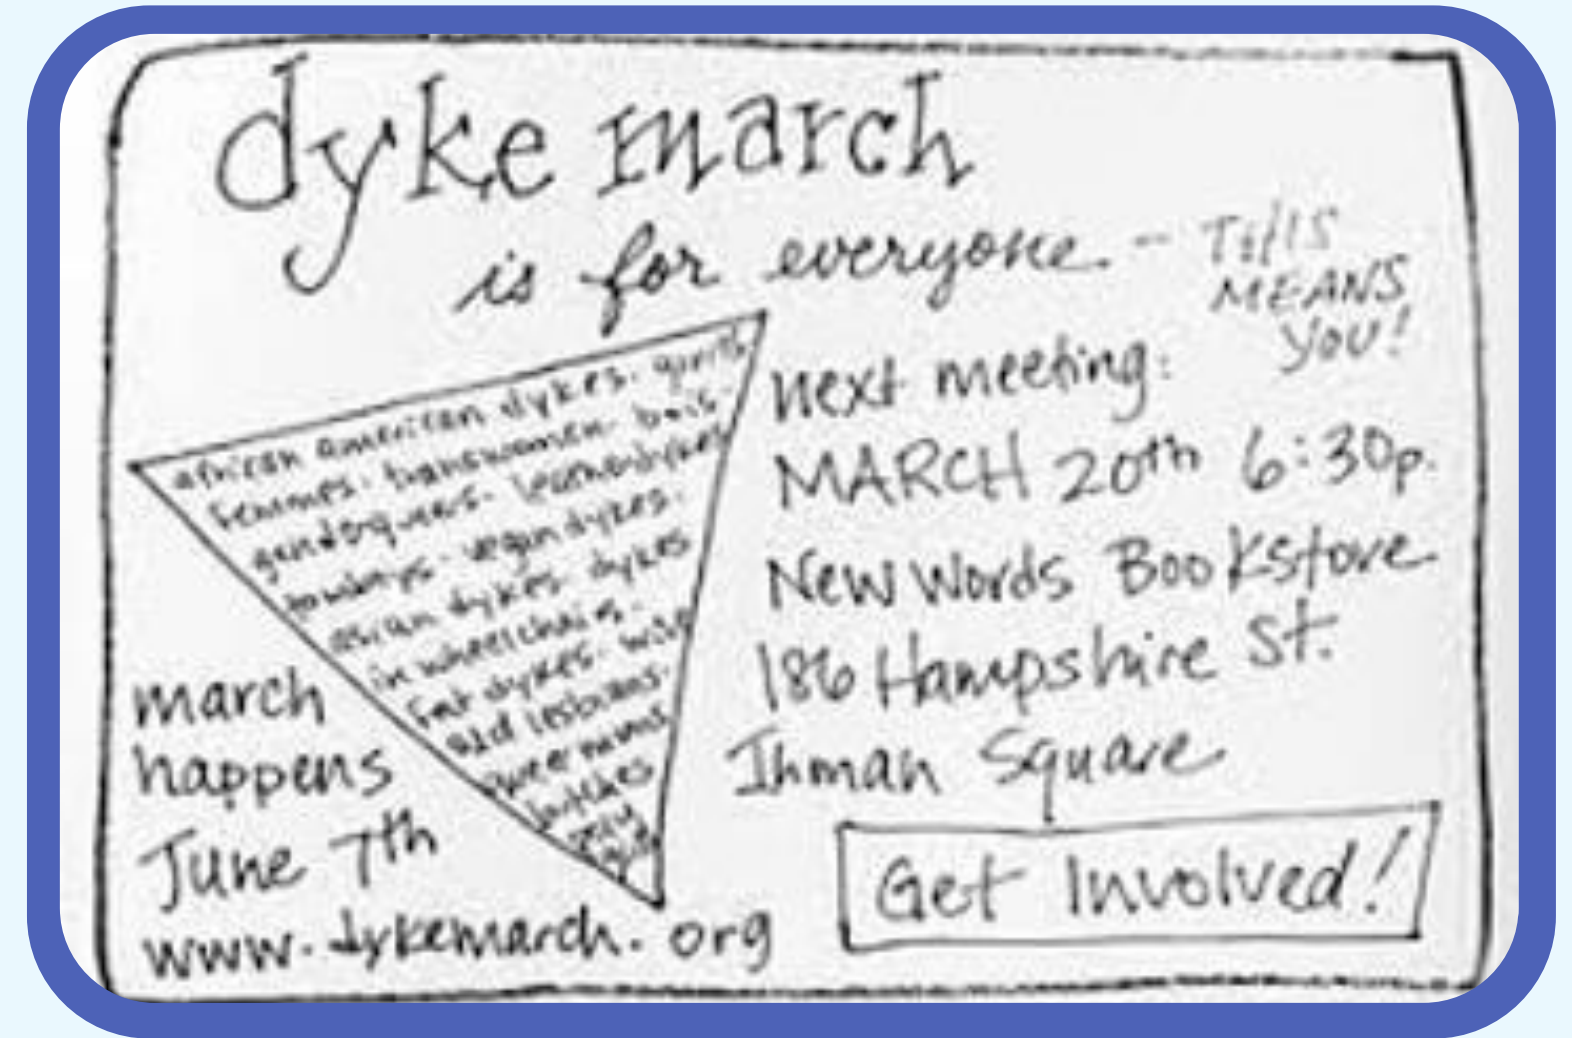 dyke march
is for everyone -- THIS
MEANS
YOU!
african american dykes · grrrls
femmes · transwomen · bois
genderqueers · leatherdykes
tomboys · vegan dykes ·
asian dykes · dykes
in wheelchairs ·
fat dykes · wise
old lesbians ·
queer moms
butches
next meeting:
MARCH 20th 6:30p.
New Words Bookstore
186 Hampshire St.
Inman Square
Get Involved!
march
happens
June 7th
www.dykemarch.org